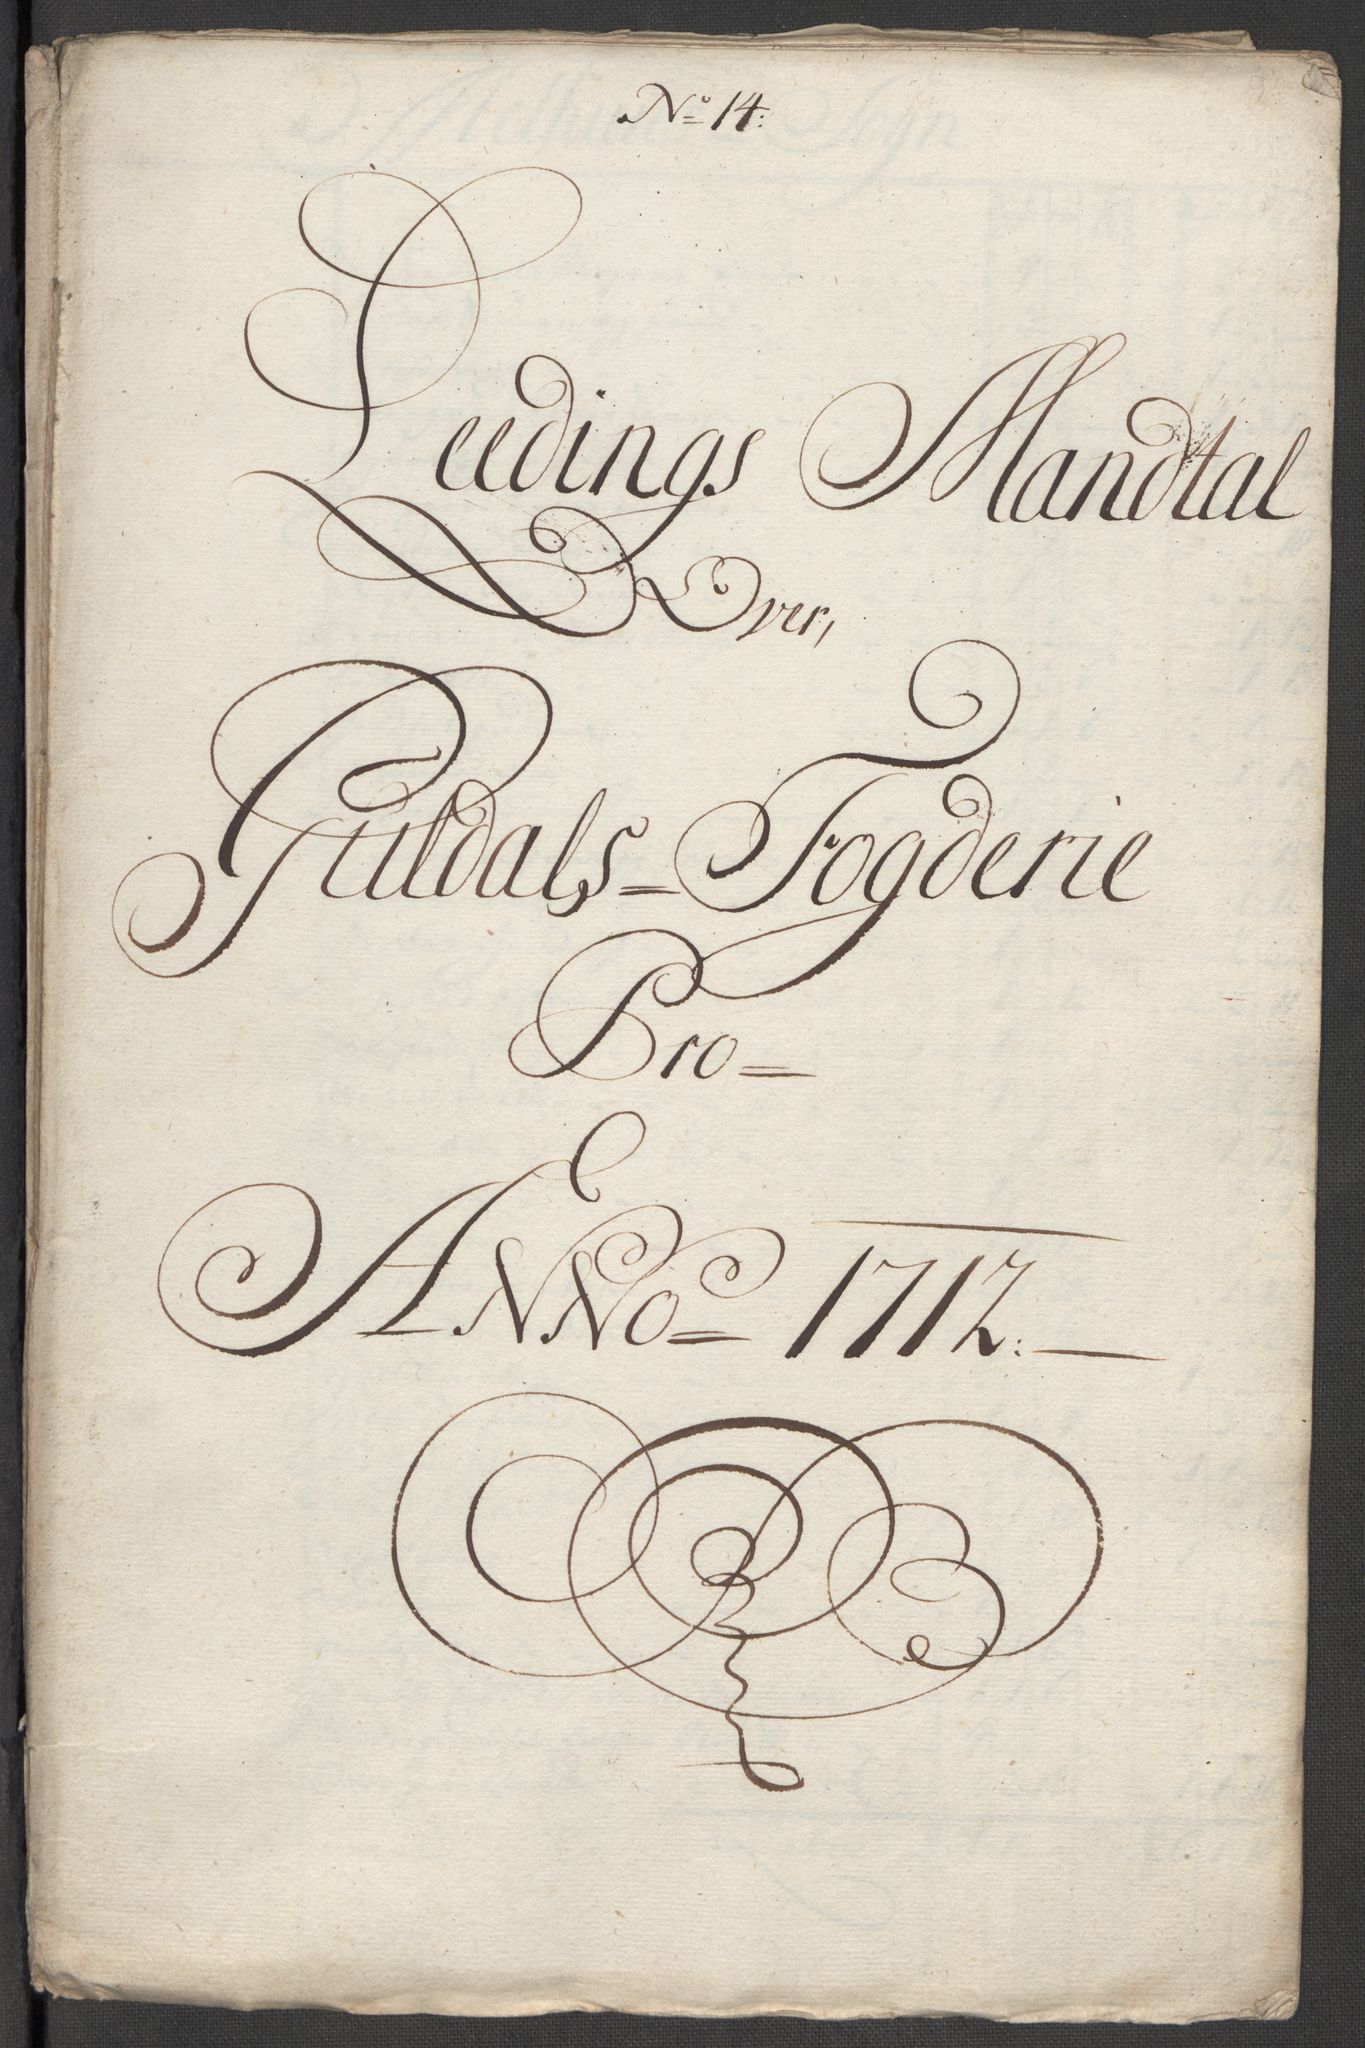 No 14:
Leedings Mandtal
Over,
Guldals = Fogderie
Pro =
ANNo = 1712.